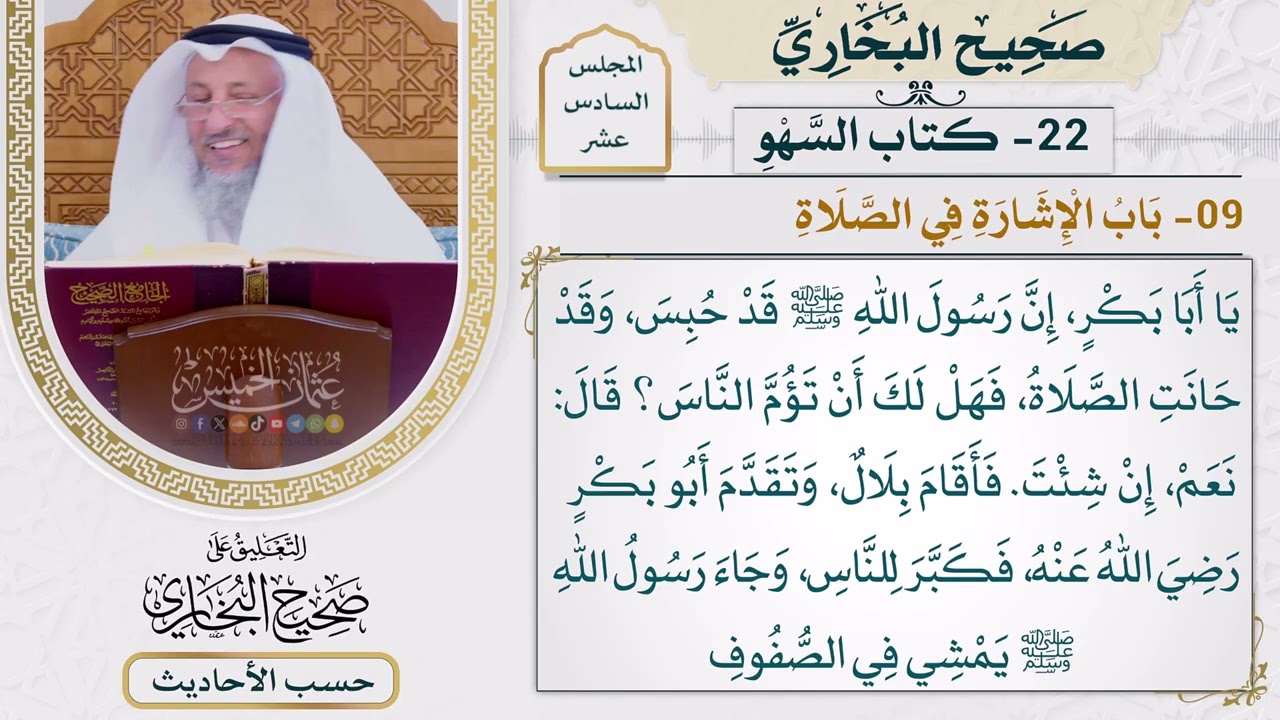 صَحِيح البُخَارِيِّ
المجلس
السادس
عشر
22- كتاب السَّهْوِ
09- بَابُ الْإِشَارَةِ فِي الصَّلَاةِ
يَا أَبَا بَكْرٍ، إِنَّ رَسُولَ اللهِ ﷺ قَدْ حُبِسَ، وَقَدْ
حَانَتِ الصَّلَاةُ، فَهَلْ لَكَ أَنْ تَؤُمَّ النَّاسَ؟ قَالَ:
نَعَمْ، إِنْ شِئْتَ. فَأَقَامَ بِلَالٌ، وَتَقَدَّمَ أَبُو بَكْرٍ
رَضِيَ اللهُ عَنْهُ، فَكَبَّرَ لِلنَّاسِ، وَجَاءَ رَسُولُ اللهِ
ﷺ يَمْشِي فِي الصُّفُوفِ
الجامع الصحيح
عُثمان الخميس
التَّعْلِيقُ عَلَى
صَحِيح البُخَارِي
حسب الأحاديث